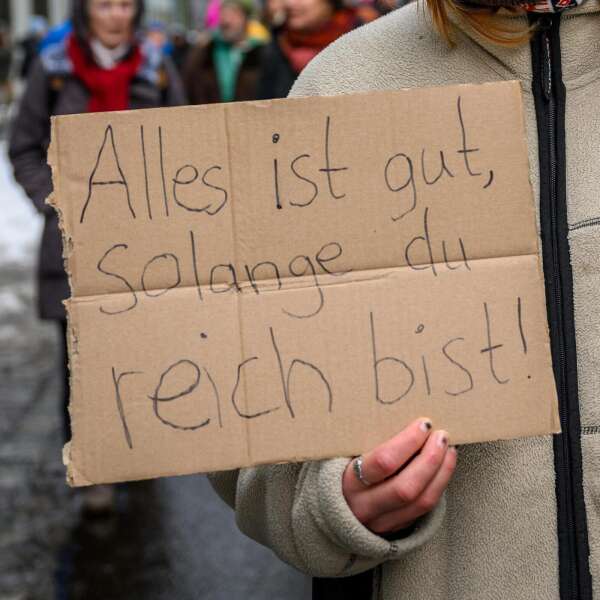 Alles ist gut,
solange du
reich bist!